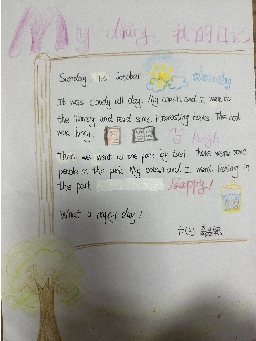 My diary 我的日记
Sunday 1st October cloudy
It was cloudy all day. My cousin and I went to
the library and read some interesting books. The
was funny. laugh
Then we went to the park by taxi. There were some
people in the park. My cousin and I went boating in
the park Happy!
What a happy day!